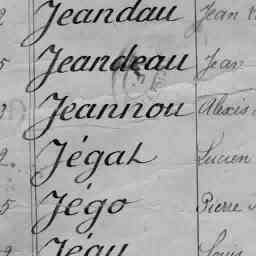 Jeandau Jean
Jeandeau Jean
Jeannou Alexis
Jégal Lucien
Jégo Pierre
Jégu Louis